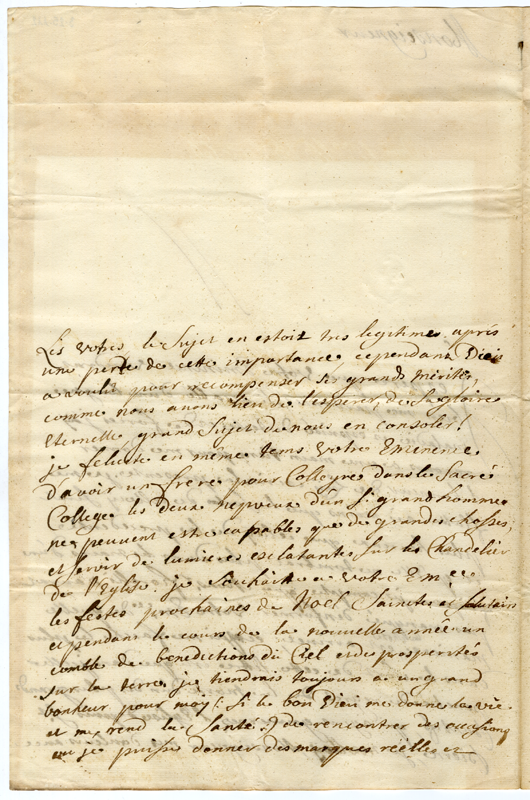 Les votres, le Sujet en estoit tres legitime, aprés
une perte de cette importance, cependant Dieu
a voulu pour recompenser ses grands mérites,
comme nous avons lieu de l'esperer, de sa gloire
Eternelle, grand Sujet de nous en consoler!
je felicite en même tems Votre Eminence
d'avoir un frere pour Collegue dans le Sacré
College les deux nepveux d'un si grand homme
ne peuvent estre capables que de grandes choses,
et servir de lumieres esclatantes sur le Chandelier
de l'Eglise je souhaitte a Votre Em.ce
les festes prochaines de Noel Saintes et salutaires
et pendant le cours de la nouvelle année un
comble de benedictions du Ciel et de prosperités
sur la terre, je tiendrais toujours a un grand
bonheur pour moy (: Si le bon Dieu me donne la vie
et me rend la Santé :) de rencontrer des occasions
ou je puisse donner des marques réélles et